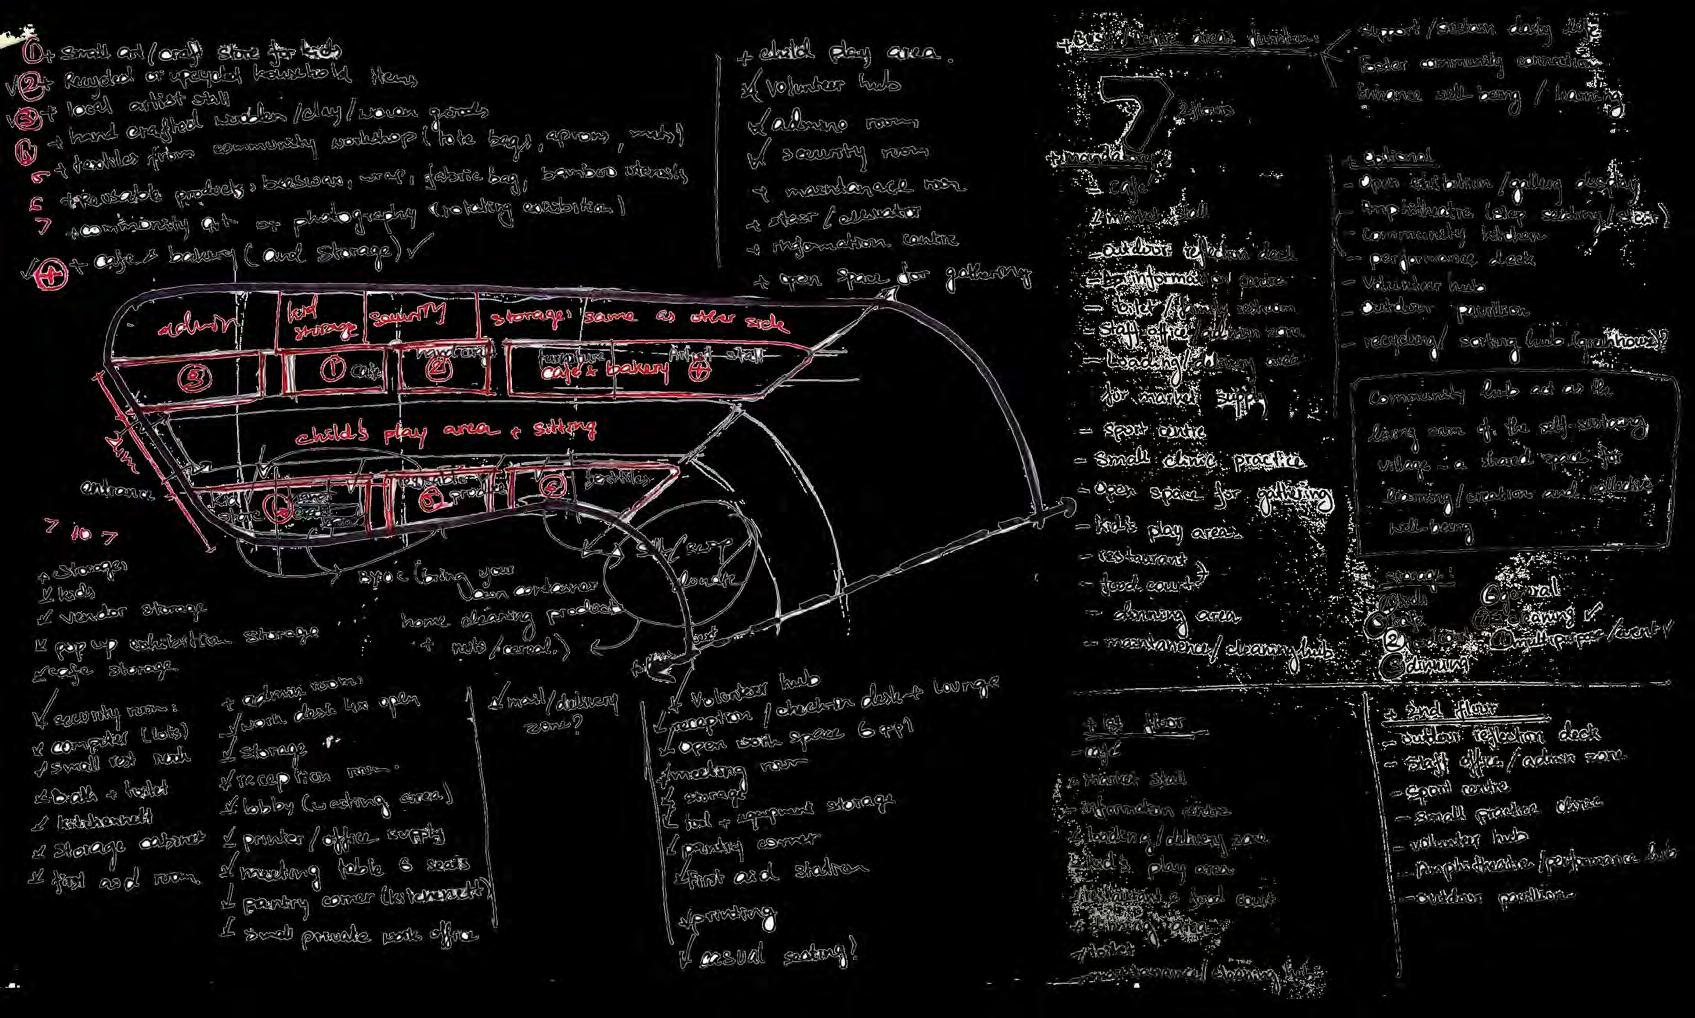 ① + small art/craft store for kids
② + Recycled or upcycled household items
③ + local artist stall
④ + hand crafted wooden/clay/woven goods
5 + textiles from community workshop (tote bags, aprons, mats)
6 + Reusable products: beeswax, wrap, fabric bag, bamboo utensils
7 + community art or photography (rotating exhibition)
+ cafe & bakery (and storage)
+ child play area.
volunteer hub
admino room
security room
+ maintanace room
+ stair/elevator
+ information centre
+ open space for gathering
admin
kid storage
security
storage: same as other side
③
① cafe
②
furniture
Artist stall
cafe & bakery +
child's play area + sitting
entrance
textiles
7 to 7
+ storages
kids
vendor storage
pop up exhibition storage
cafe storage
BYOC (bring your own container
home cleaning product
+ nuts/cereal.)
security room:
computer (lots)
small rest
bath + toilet
kitchennett
storage cabinet
first aid room.
+ admin room:
work desk open
storage
reception room.
lobby (waiting area)
printer/office supply
meeting table 6 seats
pantry corner (kitchenett)
small private work office
mail/delivery zone?
volunteer hub
reception/check in desk + lounge
open work space 6 ppl
meeting room
storage
tool + equipment storage
pantry corner
First aid station
printing
casual seating?
support/sustain daily life
Foster community connection
Enhance well being/learning
7
2 floors
+ mandatory:
- cafe
market stall
- outdoor reflection deck
- information centre
- toilet/family restroom
- staff office/admin zone
- Loading/delivery area for market supply
- sport centre
- small clinic practice
- open space for gathering
- kid's play area
- restaurant
- food court
- dinning area
- maintanence/cleaning hub
+ optional
- open exhibition/gallery display
- Amphitheatre (step seating/stair)
- community kitchen
- performance deck
- volunteer hub
- outdoor pavilion
- recycling/sorting hub (greenhouse)?
Community hub act as the
living room of the self-sustaining
village - a shared space for
learning/creation and collective
well-being
storage:
cleaning
multipurpose/event
dinning
+ 1st floor
- cafe
- market stall
- information centre
- loading/delivery zone
- kid's play area
- restaurant & food court
- dinning area
- toilet
- maintanance/cleaning hub
+ 2nd floor
- outdoor reflection deck
- staff office/admin zone
- sport centre
- small practice clinic
- volunteer hub
- Amphitheatre/performance hub
- outdoor pavilion